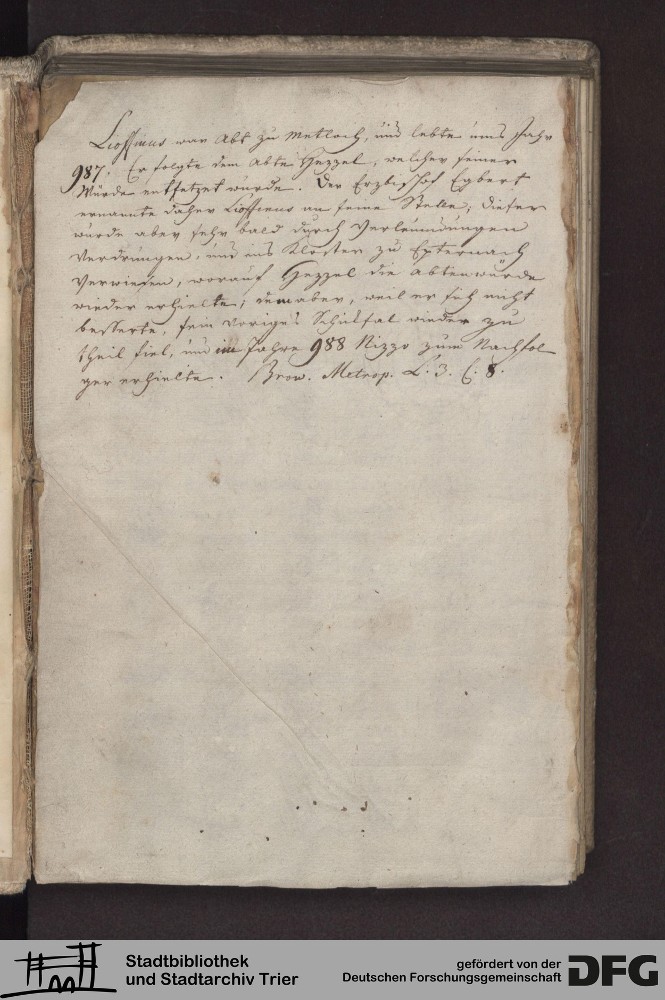 Lioffinus war Abt zu Metloch, und lebte ums Jahr
987. Er folgte dem Abte Hezzel, welcher seiner
Würde entsetzet wurde. Der Erzbischof Egbert
ernannte daher Lioffinus an seine Stelle; dieser
wurde aber sehr bald durch Verleumdungen
verdrungen, und ins Kloster zu Epternach
verwiesen, worauf Hezzel die Abtenwürde
wieder erhielte; dem aber, weil er sich nicht
besserte, sein voriges Schiksal wieder zu
theil fiel, und im Jahre 988 Nizzo zum Nachfol
ger erhielte. Brow. Metrop. L. 3. C. 8.
Stadtbibliothek
und Stadtarchiv Trier
gefördert von der
Deutschen Forschungsgemeinschaft
DFG